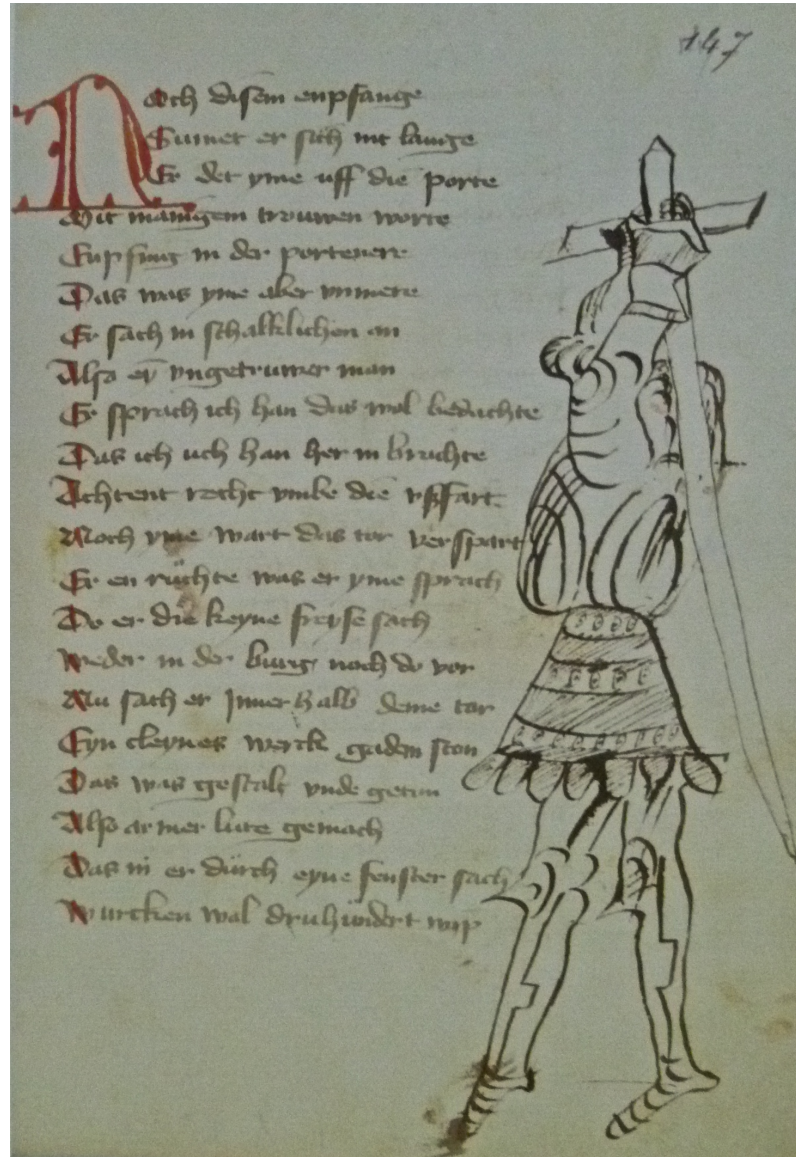 147
Noch disem enpfange
Sumet er sich nit lange
Er det yme uff die porte
Mit manigem truwen worte
Enpfing in der portenere
Das was yme aber vnmere
Er sach in schalklichen an
Also ey̅ vngetruwer man
Er sprach ich han das wol bedachte
Das ich uch han her in brachte
Achtent recht vmbe die vsffart
Noch yme wart das tor verspart
Er en rüchte was er yme sprach
Do er die keyne freyse sach
Weder in der burg noch do vor
Nu sach er Jnnerhalb deme tor
Eyn cleynes werck gadem ston
Das was gestalt vnde geton
Also armer lute gemach
Das in er dürch eyne fenster sach
Wurcken wal druhündert wip